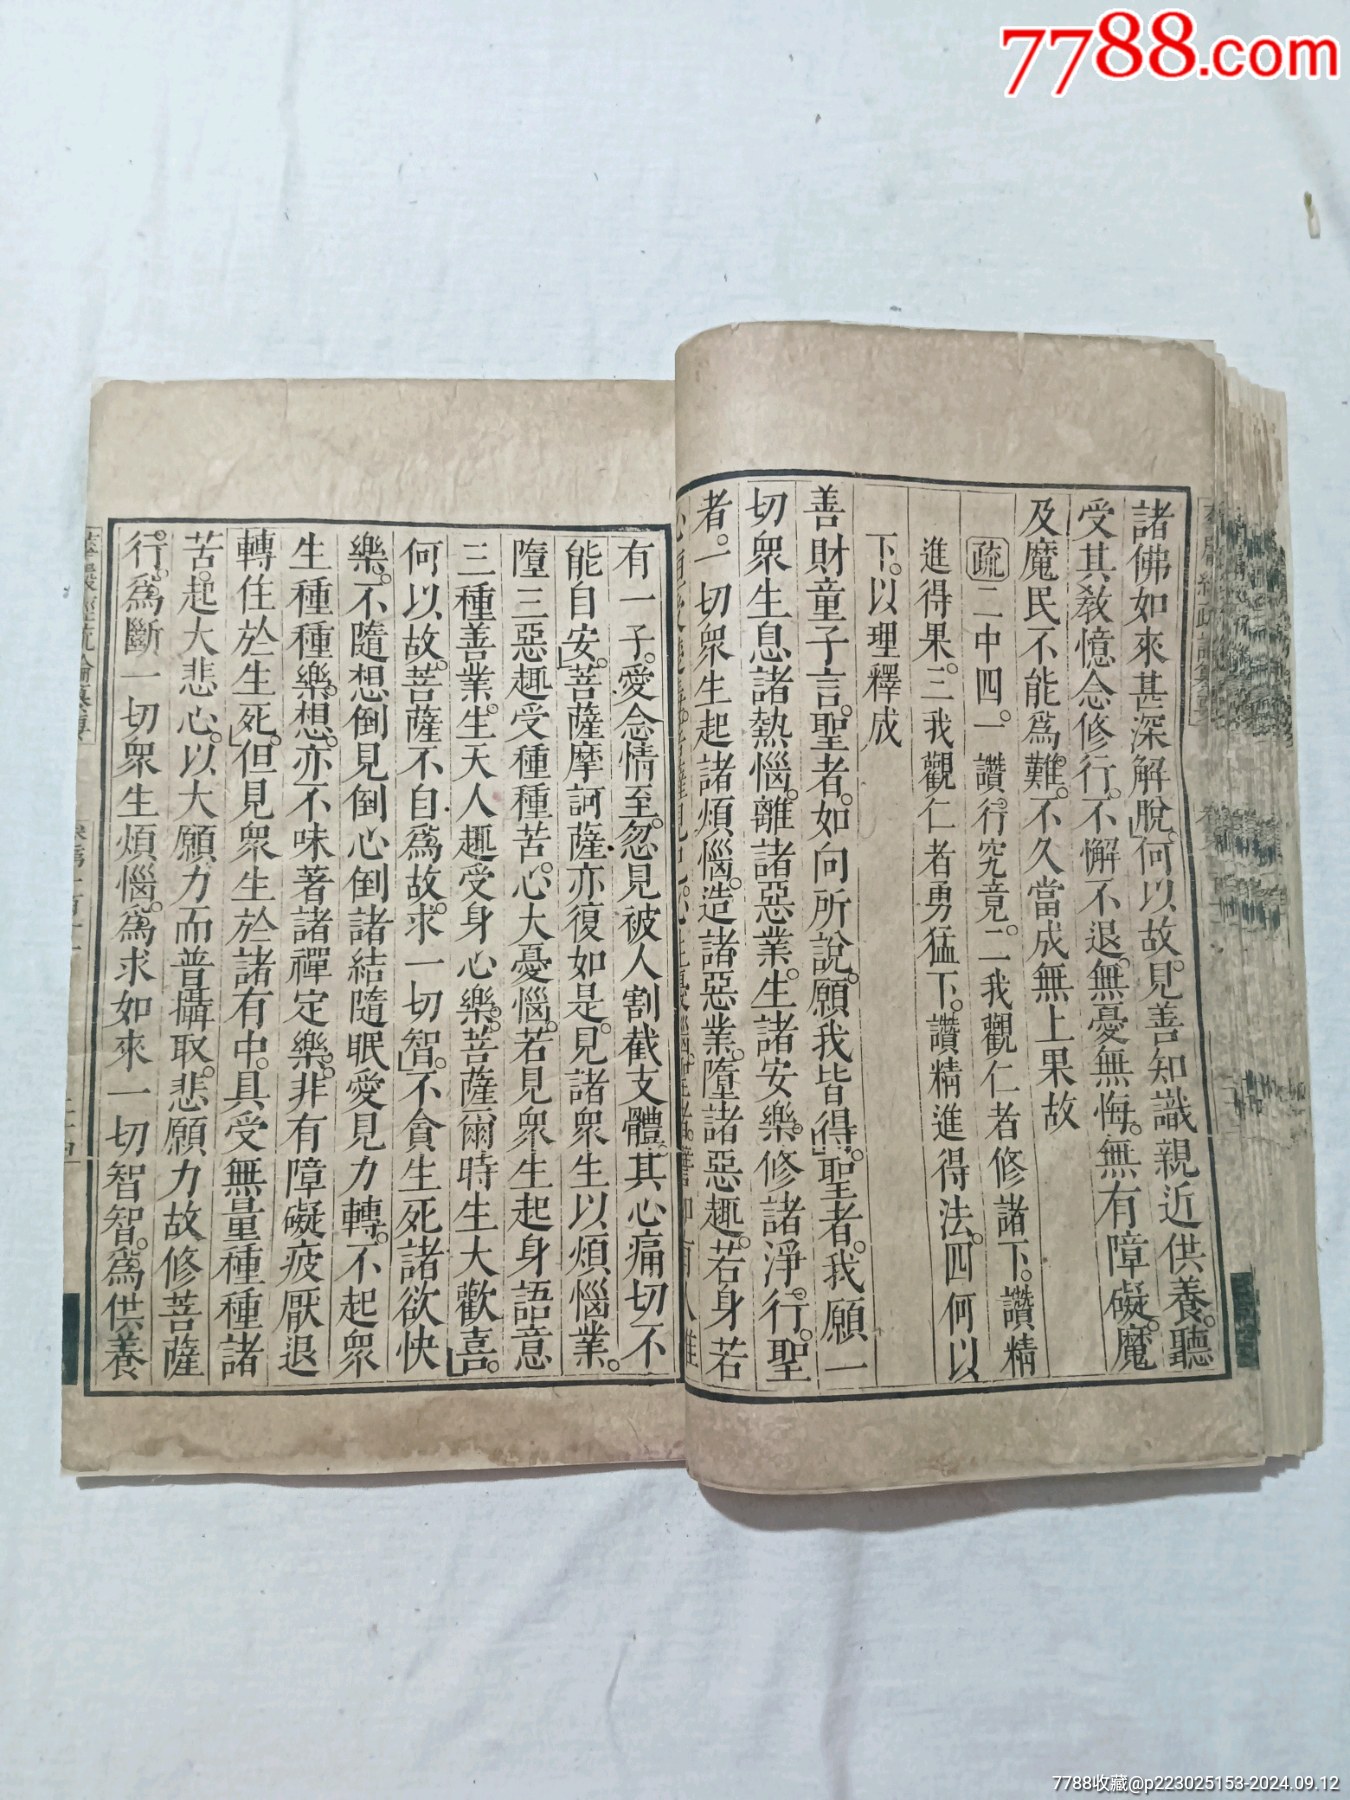 7788.com
諸佛如來甚深解脫。何以故。見善知識親近供養。聽
受其教憶念修行。不懈不退。無憂無悔。無有障礙。魔
及魔民不能為難。不久當成無上果故
疏 二中四。一讚行究竟。二我觀仁者修諸下。讚精
進得果。三我觀仁者勇猛下。讚精進得法。四何以
下。以理釋成
善財童子言。聖者。如向所說。願我皆得。聖者。我願一
切眾生息諸熱惱。離諸惡業。生諸安樂。修諸淨行。聖
者。一切眾生起諸煩惱。造諸惡業。墮諸惡趣。若身若
有一子。愛念情至。忽見被人割截支體。其心痛切不
能自安。菩薩摩訶薩亦復如是。見諸眾生以煩惱業。
墮三惡趣受種種苦。心大憂惱。若見眾生起身語意
三種善業。生天人趣受身心樂。菩薩爾時生大歡喜。
何以故。菩薩不自為故。求一切智。不貪生死諸欲快
樂。不隨想倒見倒心倒諸結隨眠愛見力轉。不起眾
生種種樂想。亦不味著諸禪定樂。非有障礙疲厭退
轉住於生死。但見眾生於諸有中。具受無量種種諸
苦。起大悲心。以大願力而普攝取。悲願力故修菩薩
行。為斷一切眾生煩惱。為求如來一切智智。為供養
7788收藏@p223025153-2024.09.12